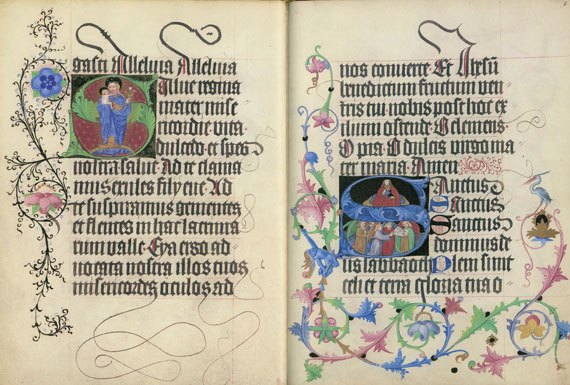 gasti Alleluia Alleluia
Salue regina
mater mise
ricordie vita
dulcedo et spes
nostra salue. Ad te clama
mus exules filij eue. Ad
te suspiramus gementes
et flentes in hac lacrima
rum valle. Eya ergo ad
uocata nostra illos tuos
misericordes oculos ad
nos conuerte. Et Ihesum
benedictum fructum ven
tris tui nobis post hoc ex
ilium ostende. O clemens
O pia. O dulcis virgo ma
ria maria. Amen
Sanctus
Sanctus
Sanctus
dominus de
us sabbaoth Pleni sunt
celi et terra gloria tua o